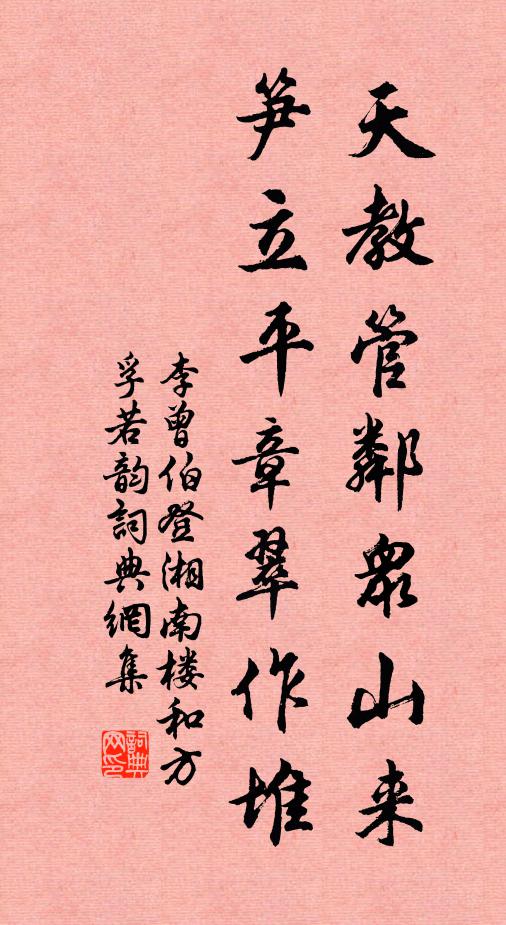 天教管鄰衆山来
笋立平章翠作堆
李曾伯登湘南楼和方
孚若韵詞典網集
詞典網印